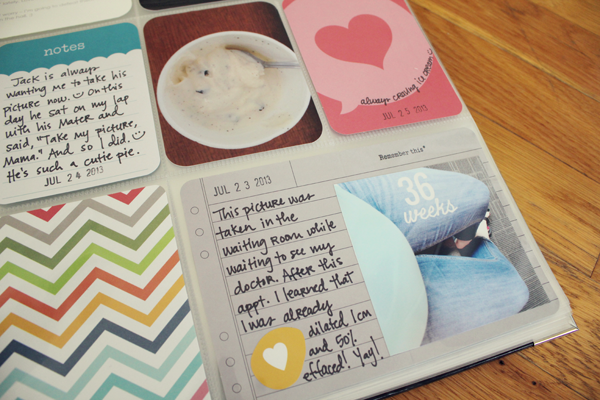 notes
Jack is always
wanting me to take his
picture now. On this
day he sat on my lap
with his Mater and
said, "Take my picture,
Mama." And so I did.
He's such a cutie pie.
JUL 24 2013
always craving ice cream
JUL 25 2013
JUL 23 2013
Remember this*
This picture was
taken in the
waiting room while
waiting to see my
doctor. After this
appt. I learned that
I was already
dilated 1cm
and 50%
effaced! Yay!
36
weeks